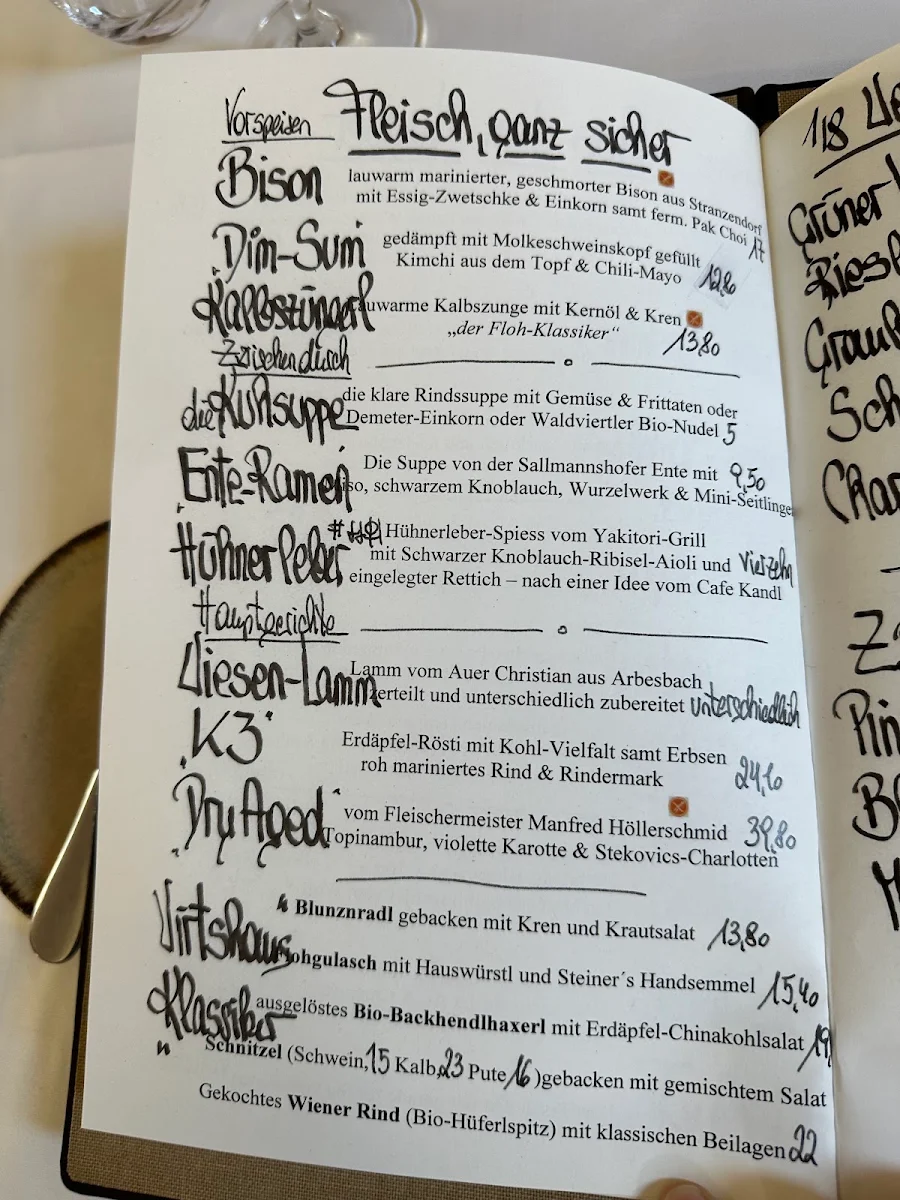 Vorspeisen Fleisch, ganz sicher
Bison lauwarm marinierter, geschmorter Bison aus Stranzendorf
mit Essig-Zwetschke & Einkorn samt ferm. Pak Choi 17
Dim-Sum gedämpft mit Molkeschweinskopf gefüllt
Kimchi aus dem Topf & Chili-Mayo 12,80
Kalbszüngerl lauwarme Kalbszunge mit Kernöl & Kren
„der Floh-Klassiker“ 13,80
Zwischendurch
die Kuhsuppe die klare Rindssuppe mit Gemüse & Frittaten oder
Demeter-Einkorn oder Waldviertler Bio-Nudel 5
Ente-Ramen Die Suppe von der Sallmannshofer Ente mit 9,50
Miso, schwarzem Knoblauch, Wurzelwerk & Mini-Seitlinge
Hühnerleber Hühnerleber-Spiess vom Yakitori-Grill
mit Schwarzer Knoblauch-Ribisel-Aioli und Vierzehn
eingelegter Rettich – nach einer Idee vom Cafe Kandl
Hauptgerichte
Wiesen-Lamm Lamm vom Auer Christian aus Arbesbach
zerteilt und unterschiedlich zubereitet unterschiedlich
„K3“ Erdäpfel-Rösti mit Kohl-Vielfalt samt Erbsen
roh mariniertes Rind & Rindermark 24,10
„Dry Aged“ vom Fleischermeister Manfred Höllerschmid 39,80
Topinambur, violette Karotte & Stekovics-Charlotten
Virtshaus Blunznradl gebacken mit Kren und Krautsalat 13,80
Flohgulasch mit Hauswürstl und Steiner´s Handsemmel 15,40
Klassiker ausgelöstes Bio-Backhendlhaxerl mit Erdäpfel-Chinakohlsalat 19
Schnitzel (Schwein, 15 Kalb, 23 Pute 16 )gebacken mit gemischtem Salat
Gekochtes Wiener Rind (Bio-Hüferlspitz) mit klassischen Beilagen 22
1/8
Grüner
Zw